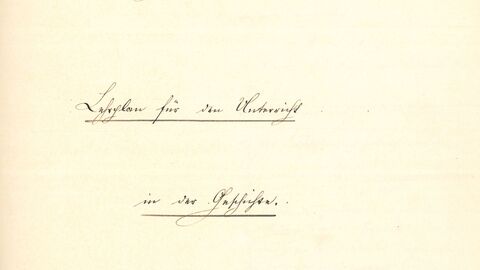 Lehrplan für den Unterricht
in der Geschichte.